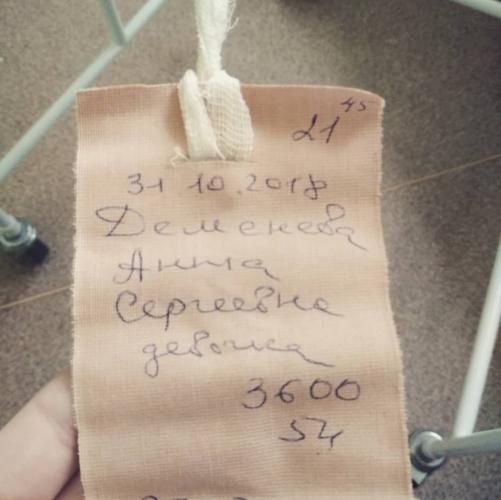 21 45
31 10.2018
Деменева
Анна
Сергеевна
девочка
3600
54